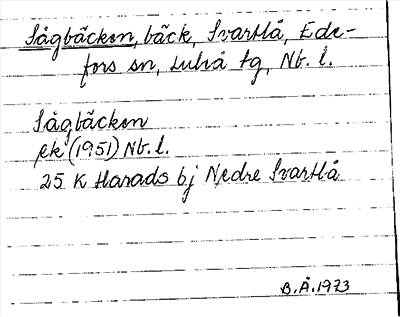 Sågbäcken, bäck, Svartlå, Ede-
fors sn, Luleå tg, Nb. l.
Sågbäcken
ek (1951) Nb. l.
25 K Harads bj Nedre Svartlå
B.Å. 1973